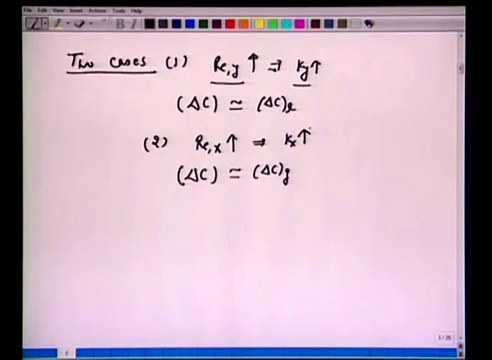 File Edit View Insert Actions Tools Help
Two cases (1) Re,y ↑ ⇒ Ky↑
(ΔC) ≃ (ΔC)l
(2) Re,x ↑ ⇒ Kx↑
(ΔC) ≃ (ΔC)g